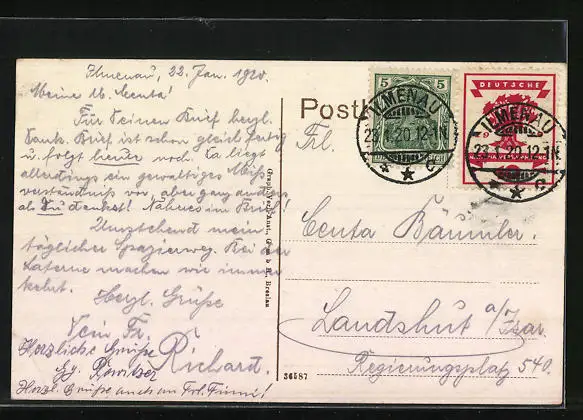 Ilmenau, 22. Jan. 1920.
Meine lb. Centa!
Für Deinen Brief herzl.
Dank. Brief ist schon gleich fertig
u. folgt heute noch. Es liegt
allerdings ein gewaltiges Miß
verständnis vor, aber ganz anders
als Du denkst! Näheres im Brief!
Umstehend mein
täglicher Spazierweg. Bei der
Laterne machen wir immer
kehrt.
Herzl. Grüße
Dein Fr.
Richard.
Herzliche Grüße
Herzl. Grüße auch an Frl. Fanni!
Graph. Verl.-Anst., G. m. b. H., Breslau
36587
Postk
5 5
ILMENAU
23.1.20.12-1N
* * c
DEUTSCHE
ILMENAU
23.1.20.12-1N
* * c
Frl.
Centa Bäumler.
Landshut a/Isar.
Regierungsplatz 540.